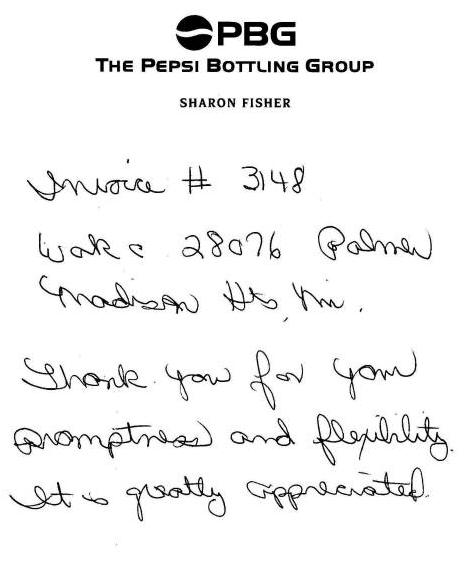 PBG
THE PEPSI BOTTLING GROUP
SHARON FISHER
Invoice # 3148
Work @ 28076 Palmer
Madison Hts, Mi.
Thank you for your
promptness and flexibility.
It is greatly appreciated.